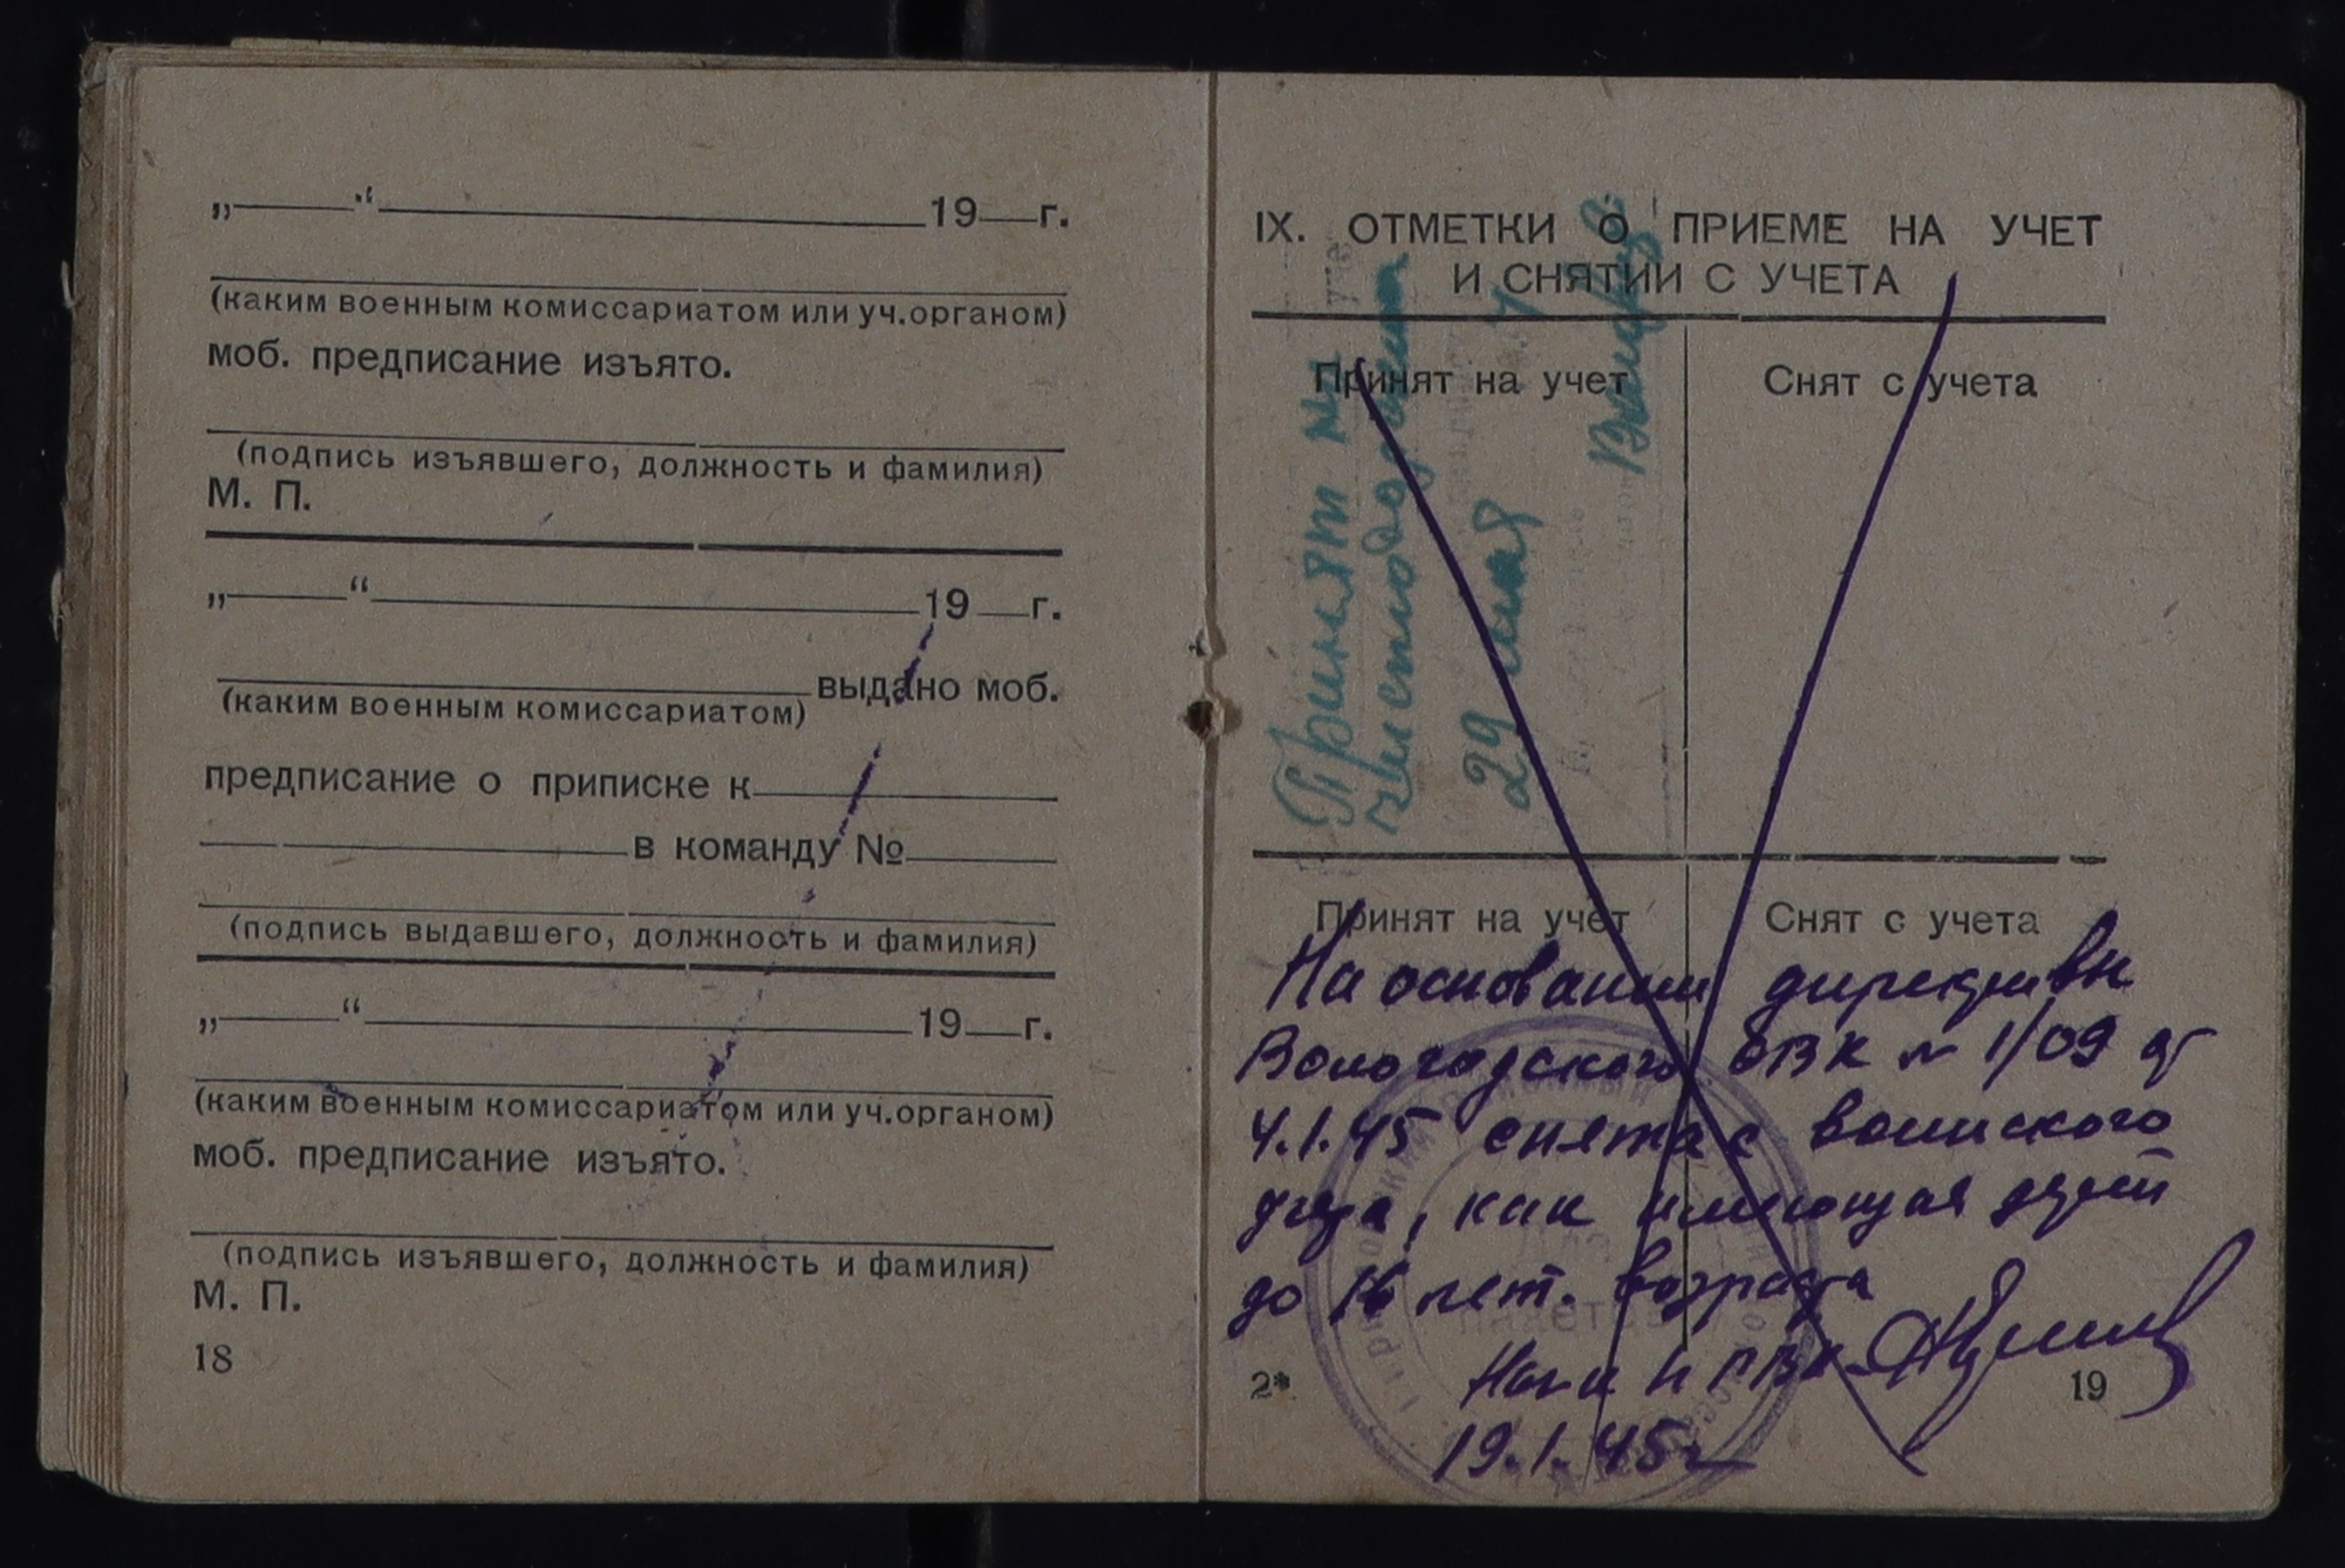 „——“ 19—г.
(каким военным комиссариатом или уч.органом)
моб. предписание изъято.
(подпись изъявшего, должность и фамилия)
М. П.
„——“ 19—г.
выдано моб.
(каким военным комиссариатом)
предписание о приписке к
в команду №
(подпись выдавшего, должность и фамилия)
„——“ 19—г.
(каким военным комиссариатом или уч.органом)
моб. предписание изъято.
(подпись изъявшего, должность и фамилия)
М. П.
18
IX. ОТМЕТКИ О ПРИЕМЕ НА УЧЕТ
И СНЯТИИ С УЧЕТА
Принят на учет Снят с учета
Принят
29 мая
Принят на учет Снят с учета
На основании директивы
Вологодского ОВК № 1/09 от
4.1.45 снята с воинского
учета, как имеющая детей
до 16 лет. возраста
19.1.45г
2*
19